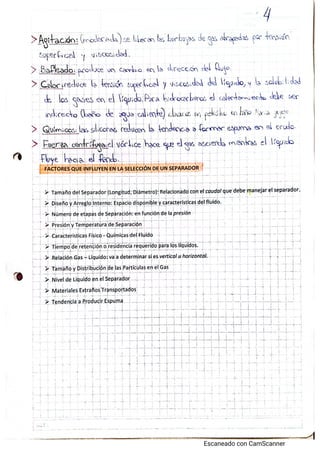 4
> Agitación: (moderada) se liberan las burbujas de gas atrapadas por tensión
superficial y viscosidad.
> Bafleado: produce un cambio en la dirección del flujo
> Calor: reduce la tensión superficial y viscosidad del líquido, y la solubilidad
de los gases en el líquido. Para hidrocarburos el calentamiento debe ser
indirecto (baño de agua caliente)
> Químicos: las siliconas reducen la tendencia a formar espuma en el crudo
> Fuerza centrífuga: el vórtice hace que el gas ascienda mientras el líquido
fluye hacia el fondo.
FACTORES QUE INFLUYEN EN LA SELECCIÓN DE UN SEPARADOR
➢ Tamaño del Separador (Longitud, Diámetro): Relacionado con el caudal que debe manejar el separador.
➢ Diseño y Arreglo Interno: Espacio disponible y características del fluido.
➢ Número de etapas de Separación: en función de la presión
➢ Presión y Temperatura de Separación
➢ Características Físico - Químicas del Fluido
➢ Tiempo de retención o residencia requerido para los líquidos.
➢ Relación Gas – Líquido: va a determinar si es vertical u horizontal.
➢ Tamaño y Distribución de las Partículas en el Gas
➢ Nivel de Líquido en el Separador
➢ Materiales Extraños Transportados
➢ Tendencia a Producir Espuma
Escaneado con CamScanner